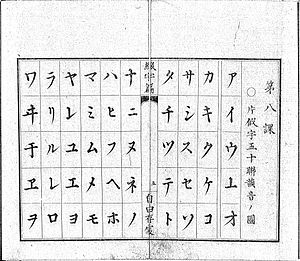 第八課
○片仮字五十聯韻音ノ圖
アイウエオ
カキクケコ
サシスセソ
タチツテト
綴字篇
五
ナニヌネノ
ハヒフヘホ
マミムメモ
ヤユエヨ
ラリルレロ
ワヰ于ヱヲ